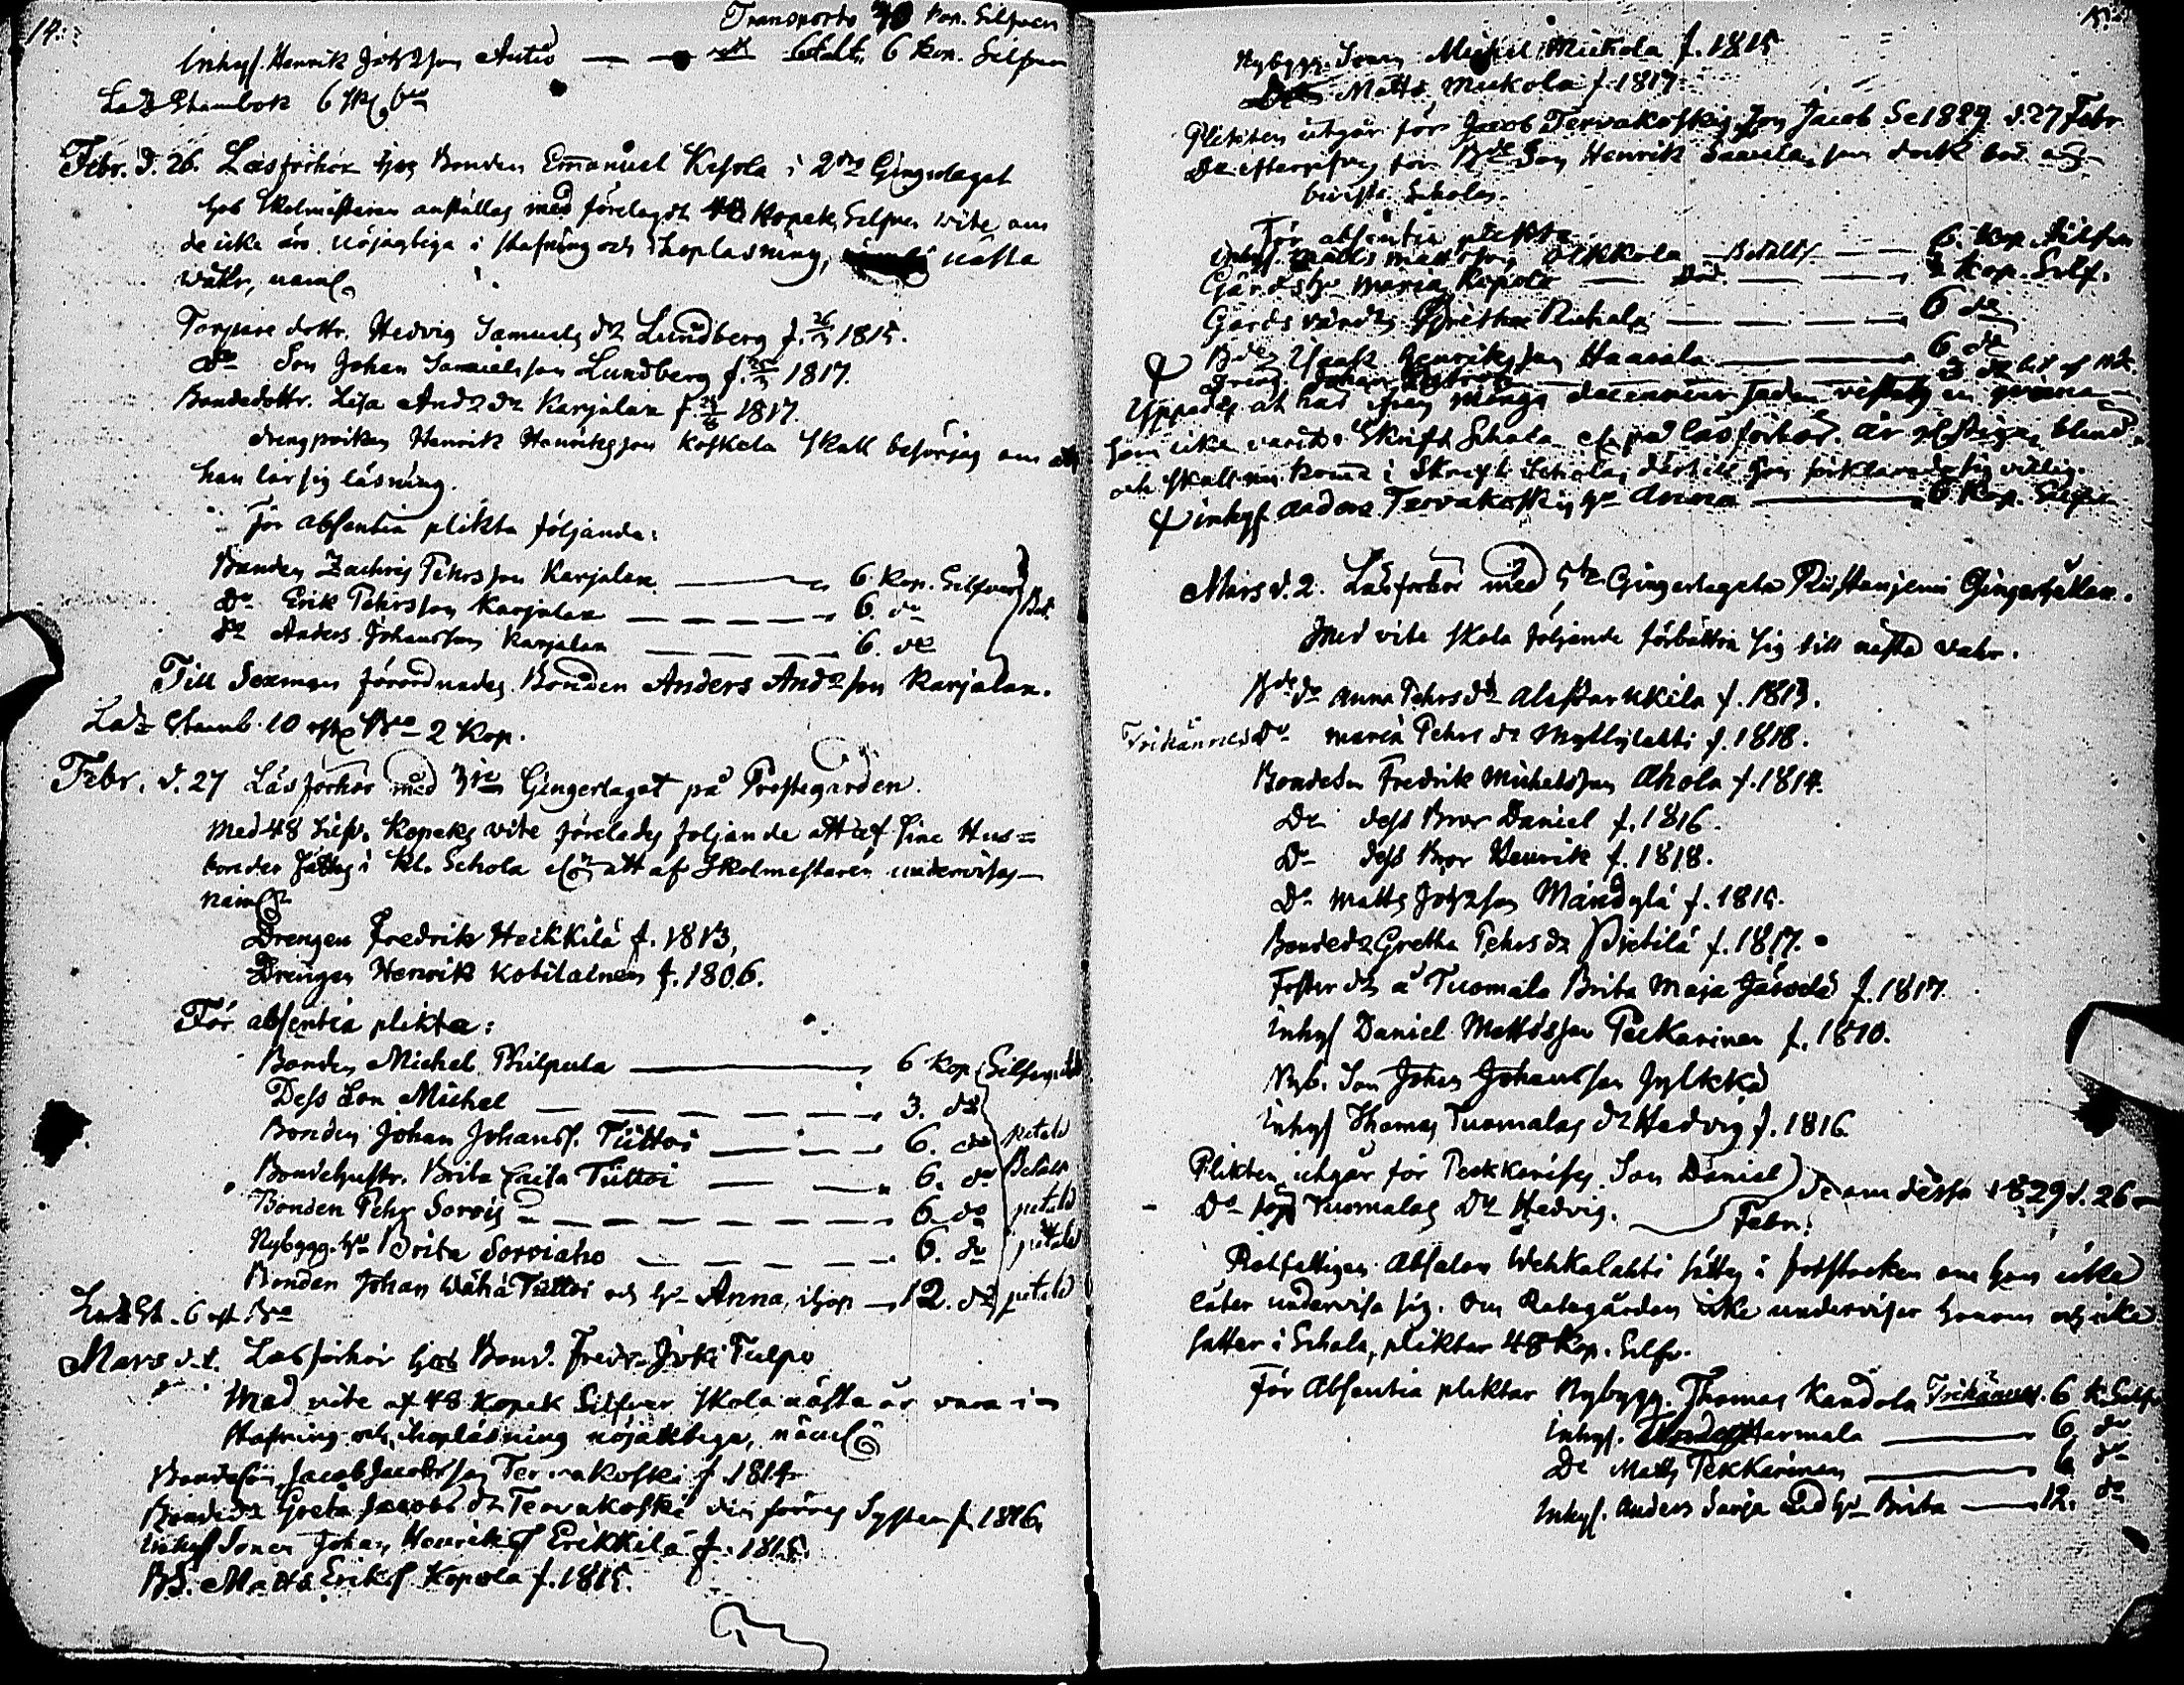 14.
Transporto 40 kop. Silfver
Inhys. Henrik Joh2son Autio — — Betalt. 6 kop. Silfver
Lad2 Stambok 6
Febr. d. 26. Läsförhör hos Bonden Emanuel Kessola i 2dra Gingerlaget
hos Skolmästaren anställes med förelagdt 48 Kopek Silfver wite om
de icke äro nöjagtiga i stafning och ihopläsning, nästa
währ, neml.
Torpare dottr. Hedvig Samuels d2 Lundberg f. 1815.
Do Son Johan Samuelsson Lundberg f. 1817.
Bondedottr. Lisa And2 d2 Karjalax f. 1817.
drengpoiken Henrik Henriksson Koskela skall besörjas om att
han lär sig läsning.
För absentia plikta följande:
Bonden Zachris Pehrsson Karjalax — 6 kop. Silfver
Do Erik Pehrsson Karjalax — — — — 6. do
Do Anders Johansson Karjalax — — — 6. do
Bet.
Till Sexman förordnades Bonden Anders And2son Karjalax.
Lad2 Stamb. 10 2 Kop.
Febr. d. 27 Läsförhör med 3je Gingerlaget på Prostegården.
Med 48 Silfv. Kopeks vite förelades följande att af sine Hus=
bönder sättas i kl. Schola att af Skolmestaren undervisas
näml.
Drengen Fredrik Heikkilä f. 1813,
Drengen Henrik Kotilainen f. 1806.
För absentia plikta:
Bonden Michel Philpula — 6 kop. Silfver
Dess Son Michel — — — — — 3. do
Bonden Johan Johanss. Tüttoi — — — 6. do betald
Bondehustr. Brita Caisa Tüttoi — — 6. do Betalt
Bonden Pehr Sorvis — — — — — 6 do betald
Nybygg. hu Brita Sorviaho — — — 6. do betald
Bonden Johan Wähä Tüttoi och hu Anna, ihop — 12. do betald
Lad2 St. 6
Mars d. 1. Läsförhör hos Bond. Fredr. Jyrki Tulpo
Med wite af 48 kopek Silfver skola nästa år vara i
stafning och ihopläsning nöjaktiga, näml.
Bondeson Jacob Jacobsson Tervakoski f. 1814
Bonded2 Greta Jacobs d2 Tervakoski den förres Syster f. 1816
Inhys Sonen Johan Henrikss Erikkilä f. 1815.
BS. Matts Eriks. Kopsola f. 1815.
15.
Nybygg. Sonen Michel Mickola f. 1815
Do Matts Mickola f. 1817
Plikten utgår för Jacob Tervakoskis Son Jacob Se 1829 d. 27 Febr.
Do eftergifves för Bde Son Henrik som dock bör
bevista Scholan.
För absentia plikta
Inhys. Matts Mattsson Olkkola — Betalt — 6. kop. Silfver
Gårdshu Maria Kopola — — 3 kop. Silf.
Gårdsvärds Grethe Richala — — — 6 do
Bde Isaak Henriksson Haavala — 6 do
Uppgafs at har
som icke varit i Skrift Schola el. på läsförhör. är blind,
och skall nu komma i Skrift Schola, därtill hon förklarade sig villig.
inhys Anders Tervakoskis hu Anna — 6 Kop. Silfver
Mars d. 2. Läsförhör med 5te Gingerlaget Gingerhållare.
Med vite skola följande förbättra sig till nästa vahr.
Bde do Anna Pehrs d2 Alapartikkila f. 1813.
Frikännes Do Maria Pehrs d2 Myllylahti f. 1818.
Bondeson Fredrik Michelsson Ahola f. 1814.
Do dess Bror Daniel f. 1816.
Do dess Bror Henrik f. 1818.
Do Matts Joh2son Mändylä f. 1815.
Bonded2 Gretha Pehrs d2 Pietilä f. 1817.
Foster d2 å Tuomala Brita Maja Järvelä f. 1817
Inhys Daniel Mattsson Peckarinen f. 1810.
Nyb. Son Johan Johansson Jylkkä
Inhys Thomas Tuomalas d2 Hedvig f. 1816
Plikten utgår för Peckarises Son Daniel
Do för Tuomalas D2 Hedvig.
Se om dessa 1829 d. 26
Febr.
Rotfattigen Absalon Wehkalahti sättes i fotstocken om han icke
låter undervisa sig. Om Rotegården icke underviser honom och icke
sätter i Schola, pliktar 48 Kop. Silfv.
För Absentia pliktar Nybygg. Thomas Kandola Frikännes. 6 k. Silfv
Inhys. Harmala — 6. do
Do Matts Pekkarinen — 6 do
Inhys. Anders Sarja med hu Brita — 12. do